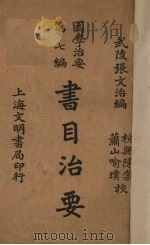 武陵張文治編
桃興陳棠校
蕭山喻璞校
國學治要
第七編
書目治要
上海文明書局印行